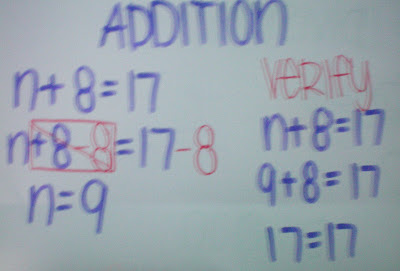 ADDITION
n+8=17
n+8-8=17-8
n=9
VERIFY
n+8=17
9+8=17
17=17